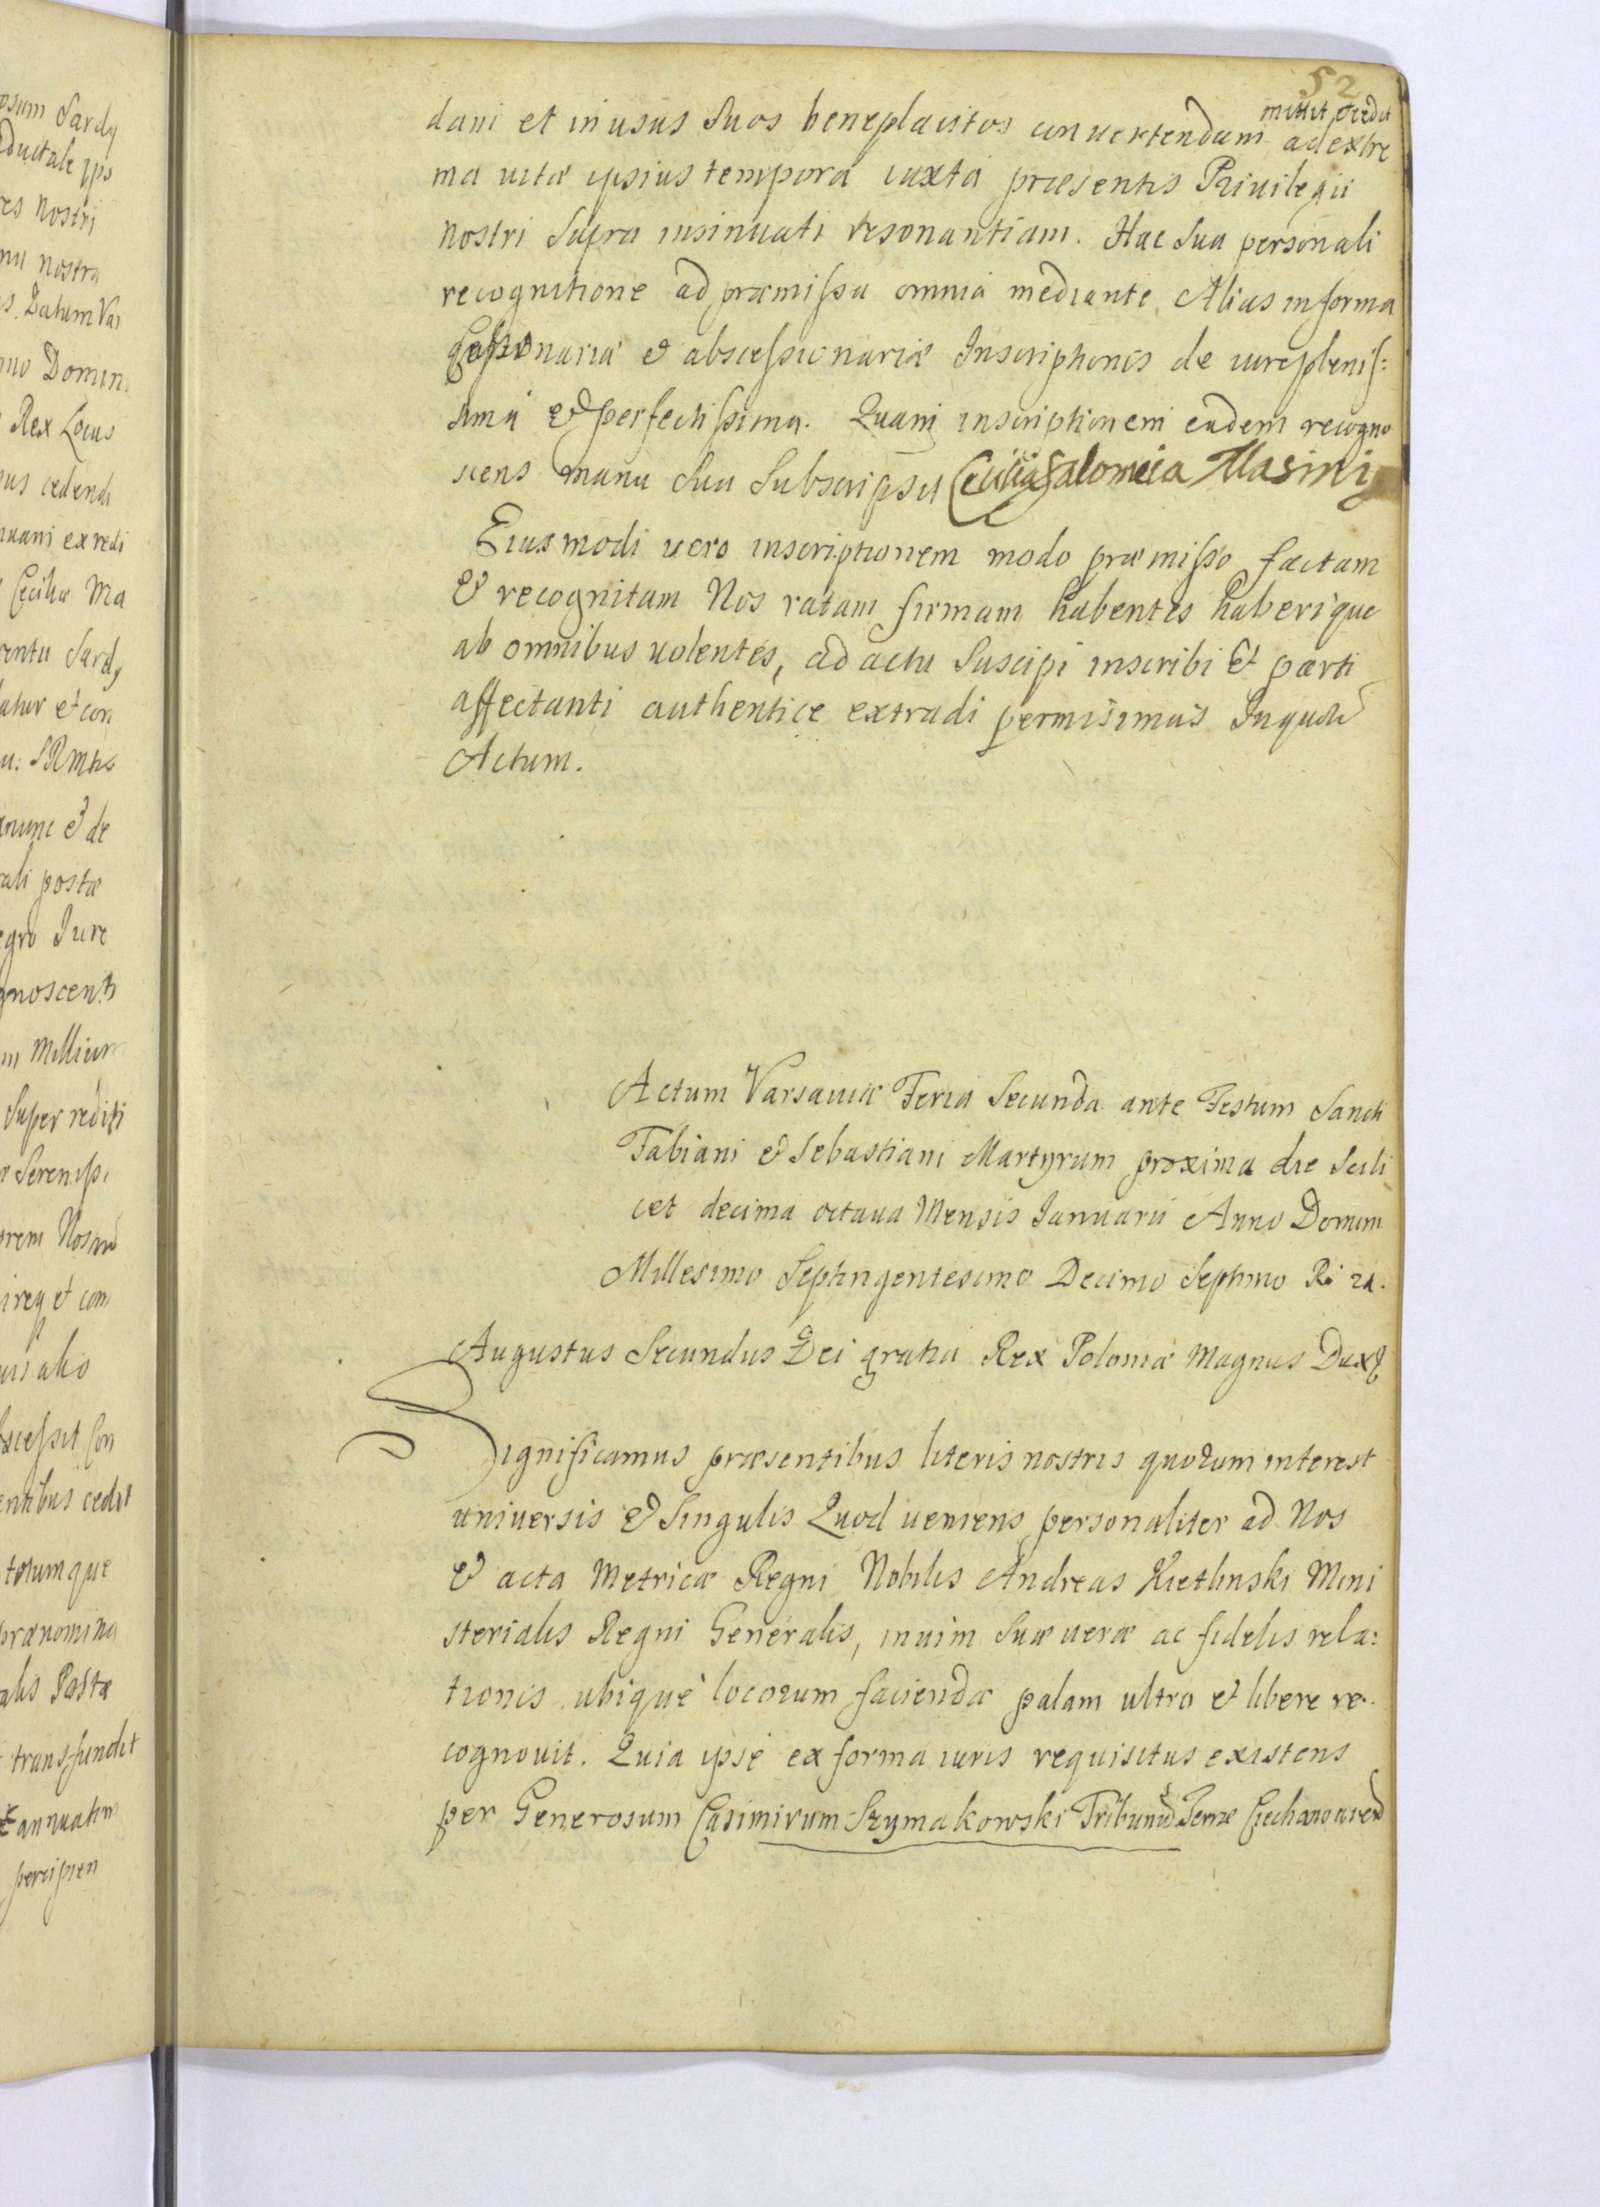 52
mittit et edit
dam et in usus suos beneplacitos convertendam ad extre
ma vitæ ipsius tempora iuxta præsentis Privilegii
nostri supra insinuati resonantiam. Hac sua personali
recognitione ad præmissa omnia mediante Alias in forma
Cessionariæ & abscessionariæ Inscriptionis de iure plenis:
sima & perfectissima. Quam inscriptionem eadem recogno
scens manu sua subscripsit Cecilia Salomeia Masini
Eiusmodi vero inscriptionem modo præmisso factam
& recognitam Nos ratam firmam habentes haberique
ab omnibus volentes, ad acta suscipi inscribi et parti
affectanti authentice extradi permisimus In quor
Actum.
Actum Varsaviæ Feria Secunda ante Festum Sancti
Fabiani & Sebastiani Martyrum proxima die Scili
cet decima octava Mensis Ianuarii Anno Domini
Millesimo Septingentesimo Decimo Septimo
Augustus Secundus Dei gratia Rex Poloniæ Magnus Dux &
Significamus præsentibus literis nostris quorum interest
universis & singulis Quod veniens personaliter ad Nos
& acta Metricæ Regni Nobilis Andreas Kietlinski Mini
sterialis Regni Generalis, in vim suæ veræ ac fidelis rela:
tionis ubique locorum faciendæ palam ultro et libere re
cognovit. Quia ipse ex forma iuris requisitus existens
per Generosum Casimirum Szymakowski Tribunũ Terræ Ciechanovien
osum Sardy
ductale ips
es Nostri
nu nostra
s. Datum Var
no Domin.
Rex Locus
us cedendi
uam ex redi
Ceciliæ Ma
entu Sardy
atur et con
u: SRMtis
nunc & de
ali postæ
egro Iure
gnoscenti
m Millium
super rediti
Sereniss.
orem Nostrũ
ireq et com
uis alio
scessit Con
entibus cedit
totumque
prænomina
alis Postæ
transfundit
t annuatim
percipien